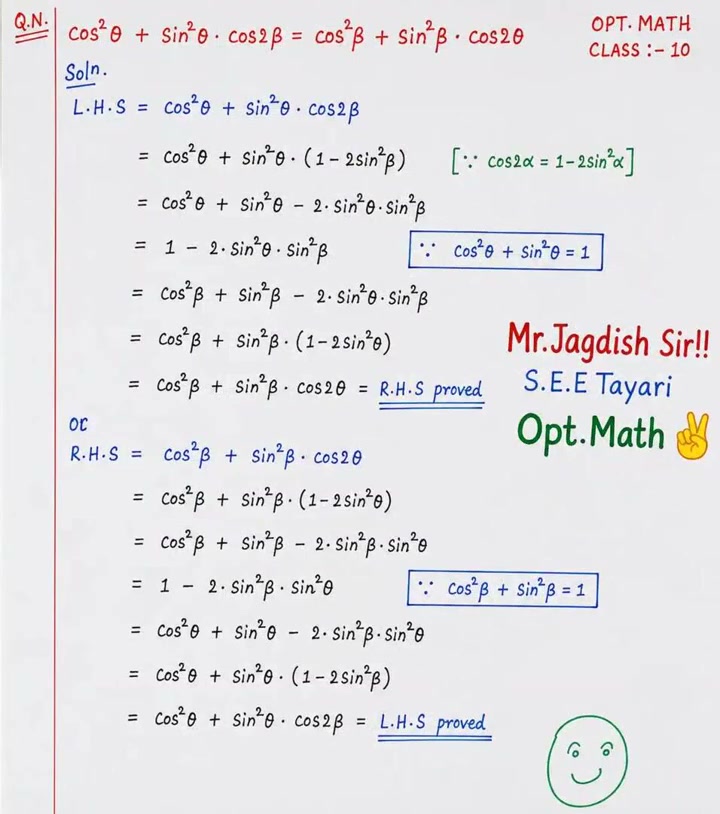 Q.N. cos²θ + sin²θ · cos2β = cos²β + sin²β · cos2θ
OPT. MATH
CLASS :- 10
Soln.
L.H.S = cos²θ + sin²θ · cos2β
= cos²θ + sin²θ · (1 - 2sin²β) [∵ cos2α = 1 - 2sin²α]
= cos²θ + sin²θ - 2 · sin²θ · sin²β
= 1 - 2 · sin²θ · sin²β ∵ cos²θ + sin²θ = 1
= cos²β + sin²β - 2 · sin²θ · sin²β
= cos²β + sin²β · (1 - 2sin²θ)
= cos²β + sin²β · cos2θ = R.H.S proved
Mr.Jagdish Sir!!
S.E.E Tayari
Opt.Math ✌
or
R.H.S = cos²β + sin²β · cos2θ
= cos²β + sin²β · (1 - 2sin²θ)
= cos²β + sin²β - 2 · sin²β · sin²θ
= 1 - 2 · sin²β · sin²θ ∵ cos²β + sin²β = 1
= cos²θ + sin²θ - 2 · sin²β · sin²θ
= cos²θ + sin²θ · (1 - 2sin²β)
= cos²θ + sin²θ · cos2β = L.H.S proved